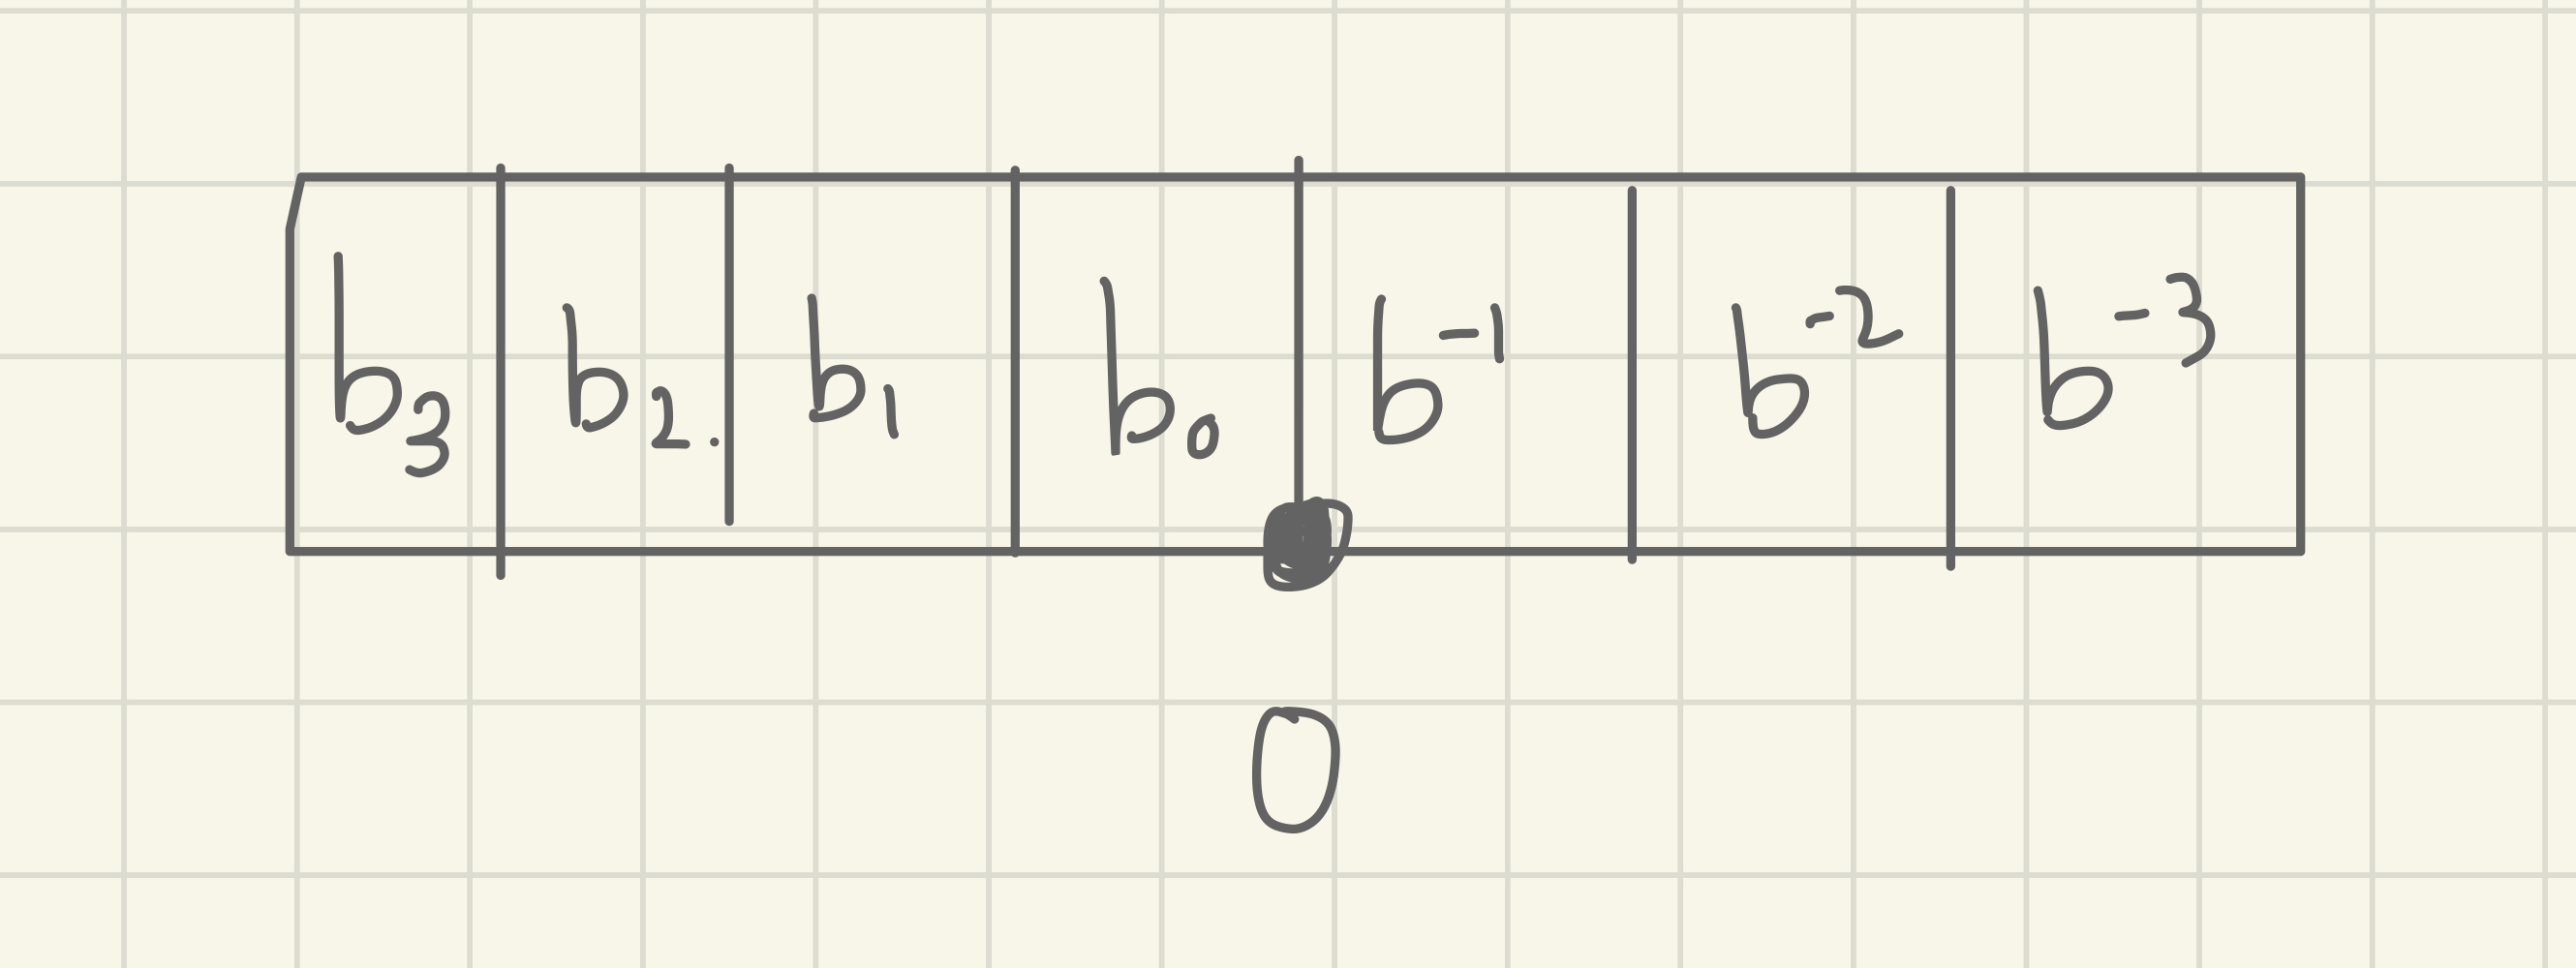 b₃ b₂. b₁ b₀ b⁻¹ b⁻² b⁻³
0